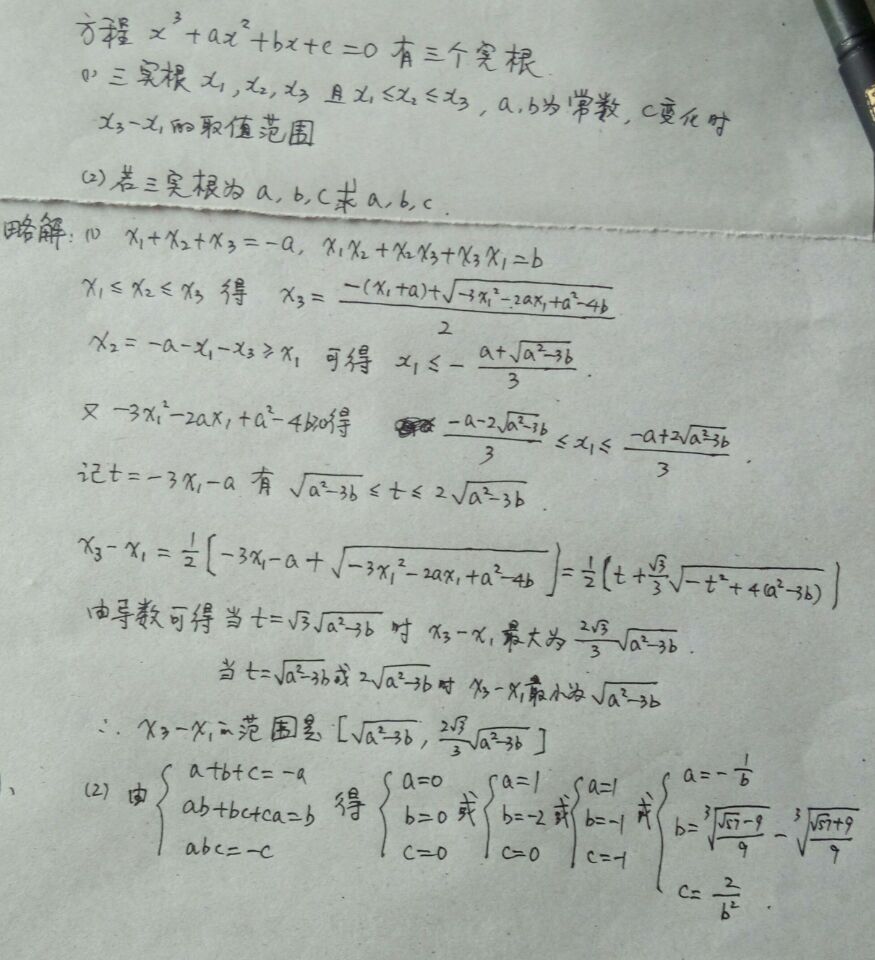 方程 x³+ax²+bx+c=0 有三个实根
(1) 三实根 x₁,x₂,x₃ 且 x₁≤x₂≤x₃, a,b为常数, c变化时
x₃-x₁的取值范围
(2) 若三实根为 a, b, c 求 a, b, c.
略解: (1) x₁+x₂+x₃=-a, x₁x₂+x₂x₃+x₃x₁=b
x₁≤x₂≤x₃ 得 x₃=\frac{-(x₁+a)+\sqrt{-3x₁²-2ax₁+a²-4b}}{2}
x₂=-a-x₁-x₃≥x₁ 可得 x₁≤-\frac{a+\sqrt{a²-3b}}{3}.
又 -3x₁²-2ax₁+a²-4b≥0得 \frac{-a-2\sqrt{a²-3b}}{3}≤x₁≤\frac{-a+2\sqrt{a²-3b}}{3}.
记t=-3x₁-a 有 \sqrt{a²-3b}≤t≤2\sqrt{a²-3b}.
x₃-x₁=\frac{1}{2}[-3x₁-a+\sqrt{-3x₁²-2ax₁+a²-4b}]=\frac{1}{2}[t+\frac{\sqrt{3}}{3}\sqrt{-t²+4(a²-3b)}]
由导数可得当t=\sqrt{3}\sqrt{a²-3b} 时 x₃-x₁最大为\frac{2\sqrt{3}}{3}\sqrt{a²-3b}.
当t=\sqrt{a²-3b}或2\sqrt{a²-3b}时 x₃-x₁最小为\sqrt{a²-3b}
∴ x₃-x₁的范围是 [\sqrt{a²-3b}, \frac{2\sqrt{3}}{3}\sqrt{a²-3b}]
(2) 由 \begin{cases} a+b+c=-a \\ ab+bc+ca=b \\ abc=-c \end{cases} 得 \begin{cases} a=0 \\ b=0 \\ c=0 \end{cases} 或 \begin{cases} a=1 \\ b=-2 \\ c=0 \end{cases} 或 \begin{cases} a=1 \\ b=-1 \\ c=-1 \end{cases} 或 \begin{cases} a=-\frac{1}{b} \\ b=\sqrt[3]{\frac{\sqrt{57}-9}{9}}-\sqrt[3]{\frac{\sqrt{57}+9}{9}} \\ c=\frac{2}{b²}. \end{cases}